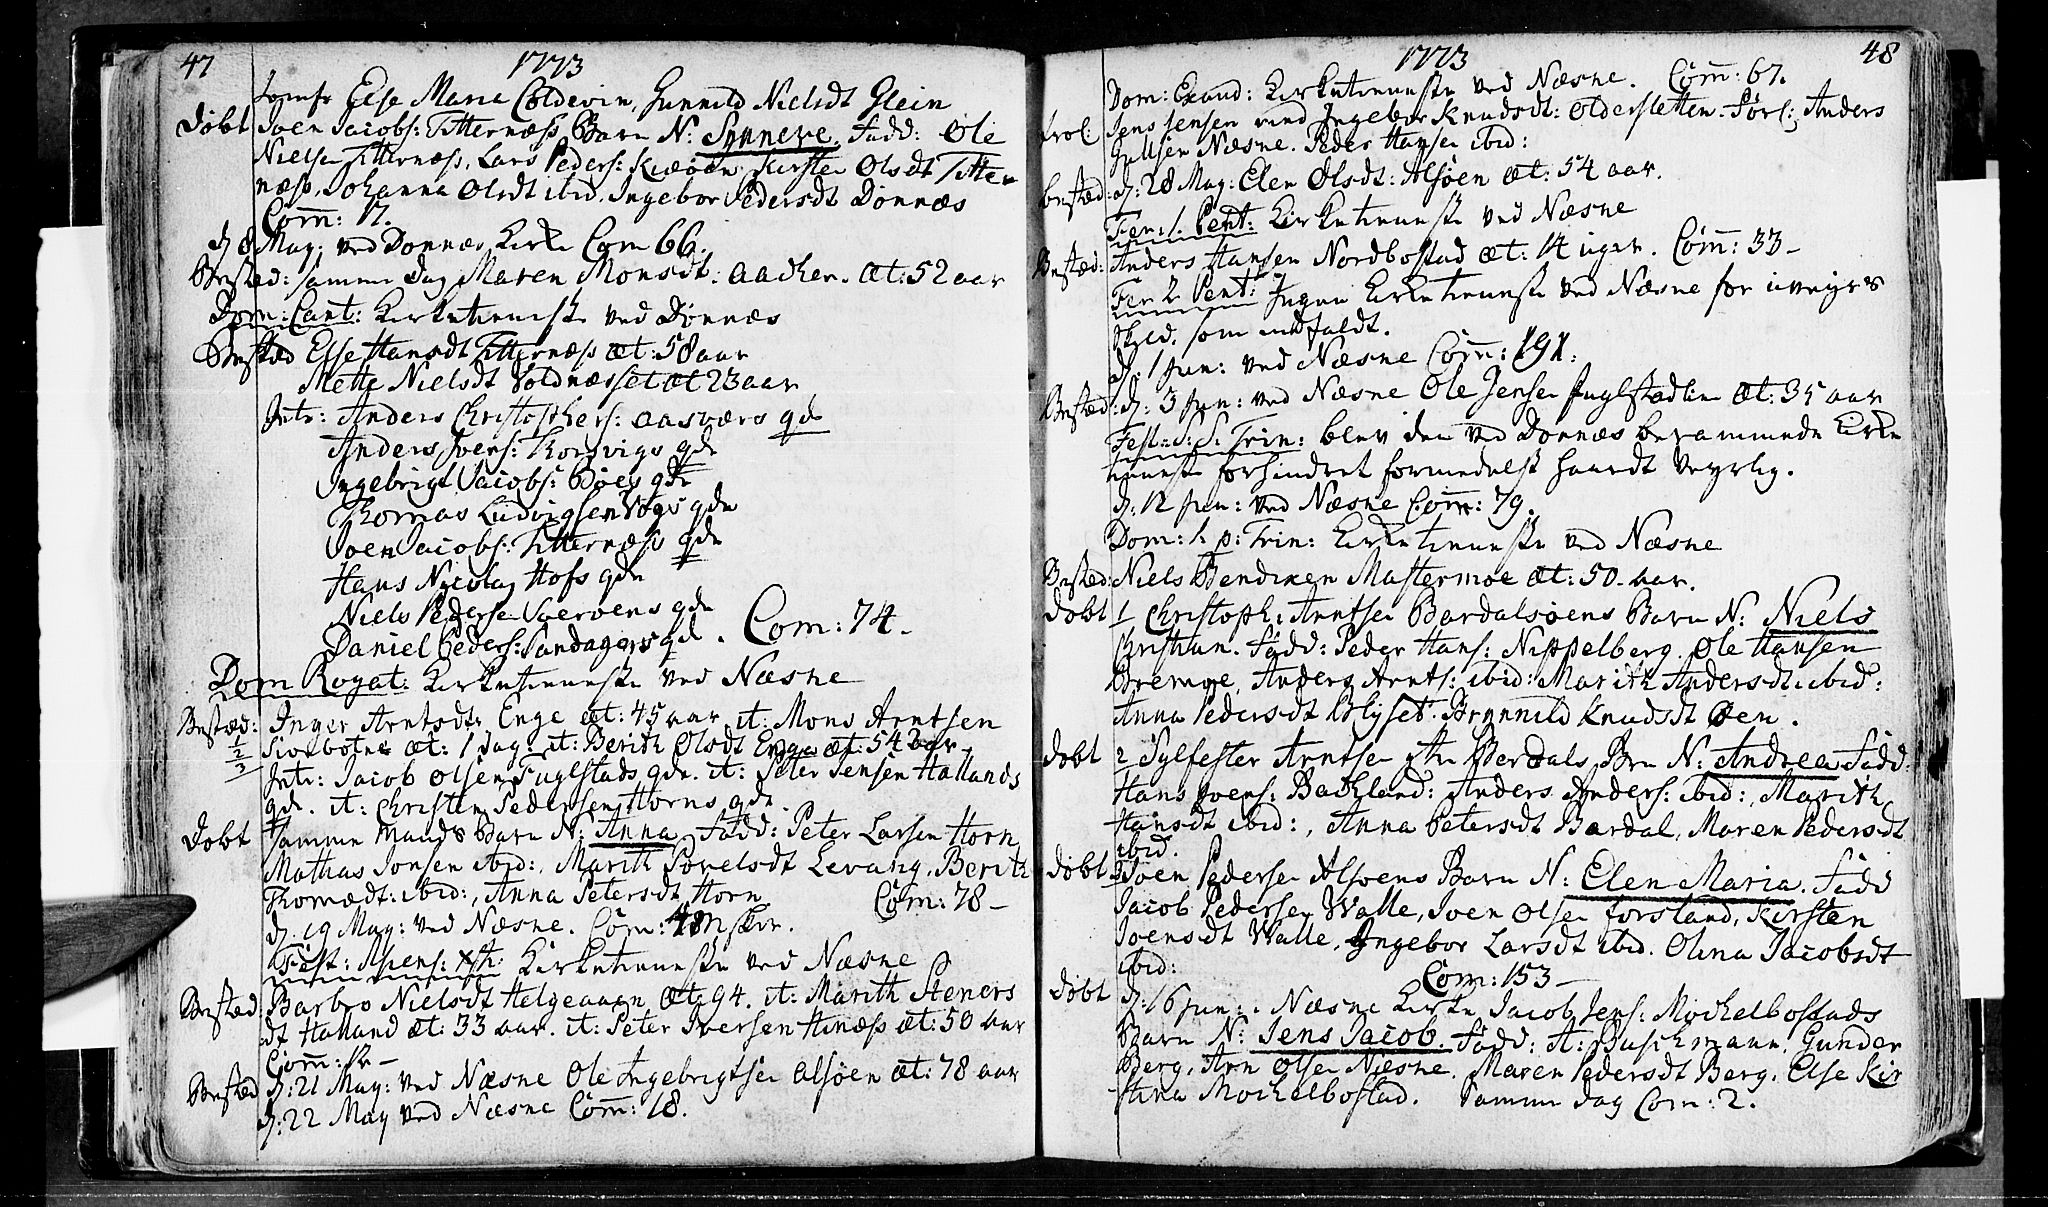 47
1773
Jomfr Else Maria Coldevin, Gunnild Nielsdt Glein
Døbt Joen Jacobs: Titternæss Barn N: Synneve. Fadd: Ole
Nielsen Titternæss, Lars Peders: Kirsten Olsdt Titter
næss, Johanna Olsdt ibid. Ingebor Pedersdt Dønnæs
Com̄: 17.
d. 8 May, ved Dønnæs Kirke Com 66.
Bested: samme dag Maren Monsdt: Aacher. æt: 52 aar
Dom: Cant: Kirketieneste ved Dønnæs
Bested Else Hansdt Titternæss æt: 58 aar
Mette Nielsdt Voldnæsset æt 23 aar
Intr: Anders Christophers: Aasværs qde
Anders Ivers: Thorsvigs qde
Ingebrigt Jacobs: Bøes qde
Thomas Ludvigsen Vogs qde
Joen Jacobs: Titternæss qde
Hans Nicolay Hofs qde
Niels Pedersen qde
Daniel Peders: Sandagers qd. Com: 74.
Dom Rogat: Kirketieneste ved Næsne
Bested: Inger Arntsdtr Enge æt: 45 aar it: Mons Arntsen
1/2/3 æt: 1 dag: it: Berith Olsdt Enge æt: 54 aar
Intr: Jacob Olsen Fuglstads qde. it: Peter Jensen Hallands
qde. it: Christen Pedersen Horns qde.
Døbt samme Mands Barn N: Anna, Fadd: Peter Larsen Horn
Mathias Jonsen ibid:, Marith Povelsdt Levang, Berith
Thomædt: ibid:, Anna Petersdt Horn. Com: 78 –
d. 19 May: ved Næsne. Com̄: 48
Fest: Ascens: Xsti: Kirketieneste ved Næsne
Bested: Barbro Nielsdt Helgeaaen æt: 94. it: Marith Steners
dt Halland æt: 33 aar. it: Peter Iversen Hinæss æt: 50 aar
Com̄:
Bested d: 21 May: ved Næsne Ole Ingebrigtsen Alsøen æt: 78 aar
d: 22 May ved Næsne Com̄: 18.
48
1773
Dom: Exaud: Kirketieneste ved Næsne. Com̄: 67.
trol: Jens Jensen med Ingebor Knudsdt: Oldersletten. Forl: Anders
Gullsen Næsne. Peder Hansen ibid:
bested: d: 28 May: Elen Olsdt: Alsøen æt: 54 aar.
Fer: 1. Pent: Kirketieneste ved Næsne
Bested: Anders Hansen Nordbostad æt: 14 uger. Com̄: 33 –
Fer 2 Pent: Ingen Kirketieneste ved Næsne for uveyrs
skyld, som indfaldt.
d. 1 Jun: ved Næsne Com̄: 191.
Bested: d: 3 Jun: ved Næsne Ole Jensen Fuglstadlien æt: 35 aar
Fest: S: S: Trin: blev den ved Dønnæs berammede Kirke
tieneste forhindret formedelst haardt Veyrlig.
d: 12 Jun: ved Næsne Com̄: 79.
Dom: 1. p: Trin: Kirketieneste ved Næsne
Bested: Niels Bendixen Mastermoe æt: 50 aar.
Døbt 1 Christoph: Arntsen Bardalsøens Barn N: Niels
Christian. Fadd: Peder Hans: Nippelberg. Ole Hansen
Bremoe, Anders Arnts: ibid: Marith Andersdt: ibid:
Anna Pedersdt Brynnild Knudsdt Øen.
Døbt 2 Sylfester Arntsen Bardals Brn N: Andrea Fadd:
Hans Ivers: Backland: Anders Anders: ibid:, Marith
Hansdt ibid:, Anna Petersdt Bardal, Maren Pedersdt
ibid.
Døbt 3 Joen Pedersen Alsøens Barn N: Elen Maria. Fadd
Jacob Pedersen Walle, Joen Olsen Forsland, Kirsten
Joensdt Walle, Ingebor Larsdt ibid. Olina Jacobsdt
ibid:
Com: 153 –
Døbt d: 16 Jun: i Næsne Kirke Jacob Jens: Mochelbostads
Barn N: Jens Jacob. Fadd: A: Buschmann, Gunder
Berg, Arn Olsen Næsne. Maren Pedersdt Berg. Else Kir
stina Mochelbostad. Samme dag Com: 2.